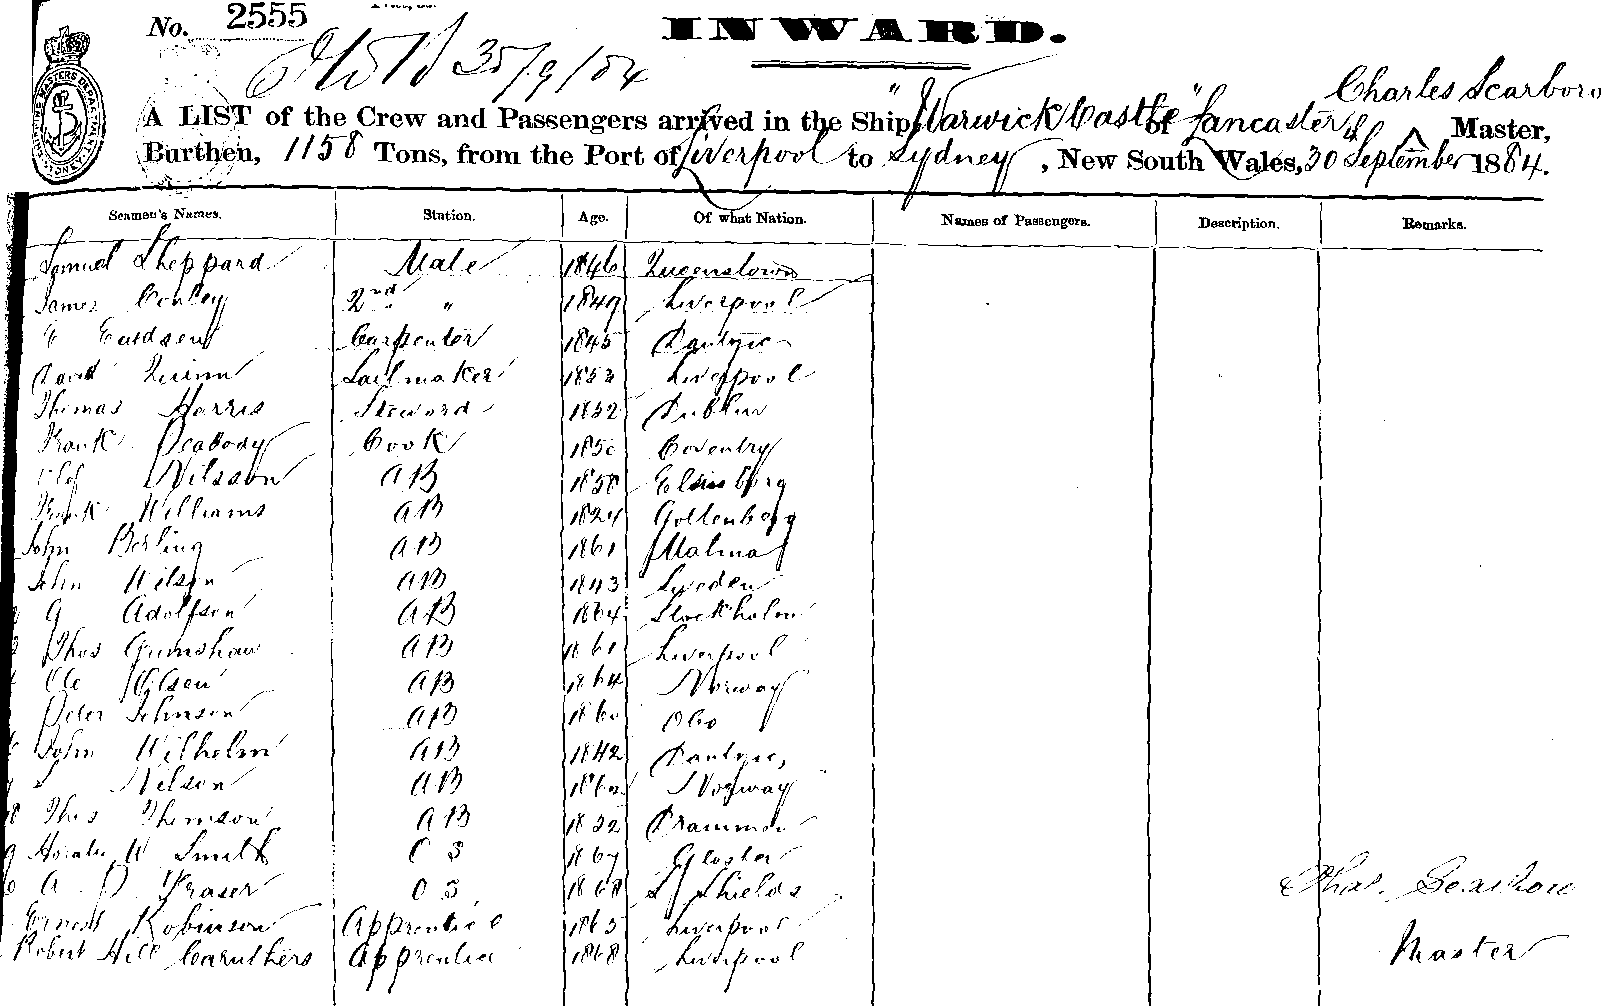 No. 2555
INWARD.
30/9/84
Charles Scarboro
A LIST of the Crew and Passengers arrived in the Ship "Warwick Castle" of Lancaster, Master,
Burthen, 1158 Tons, from the Port of Liverpool to Sydney, New South Wales, 30 September 1884.
Seamen's Names. Station. Age. Of what Nation. Names of Passengers. Description. Remarks.
Samuel Sheppard Mate 1846 Queenstown
James Conley 2nd " 1849 Liverpool
E Carpenter 1845 Dantzic
David Quinn Sailmaker 1853 Liverpool
Thomas Harris Steward 1852 Dublin
Frank Peabody Cook 1850 Coventry
Olof Nilsson AB 1858 Elsinborg
Frank Williams AB 1824 Gottenberg
John Berling AB 1861 Malma
John Wilson AB 1843 Sweden
G Adolfson AB 1864 Stockholm
Thos Grimshaw AB 1861 Liverpool
Ole Olsen AB 1864 Norway
Peter Johnson AB 1860 Obo
John Wilhelm AB 1842 Dantzic,
Nelson AB Norway
18 Thos Thomson AB 1852 Drammen
9 Horatio W Smith O S Gloster
A Fraser O S 1868 S Shields
Chas. Scarboro
Ernest Robinson Apprentice 1865 Liverpool
Robert Hill Caruthers Apprentice 1868 Liverpool
Master